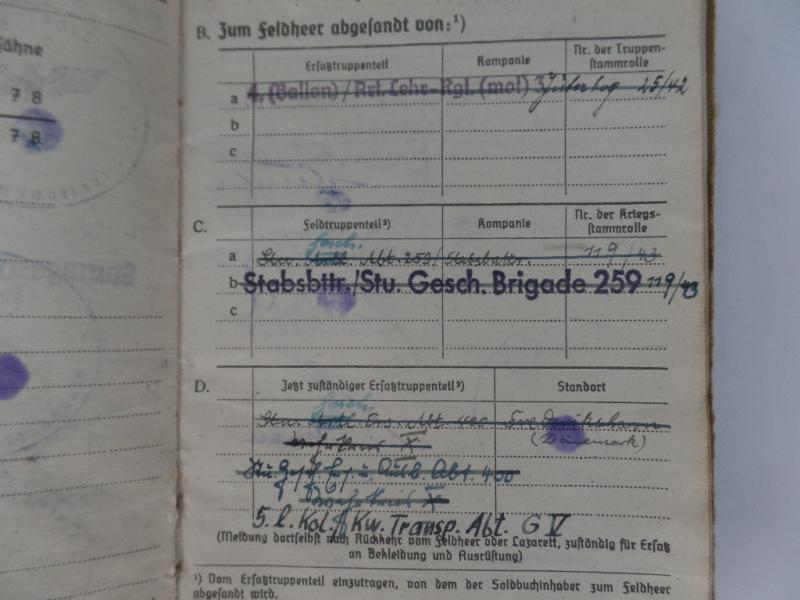 ähne
7 8
7 8
B. Zum Feldheer abgesandt von:¹)
Ersatztruppenteil Kompanie Nr. der Truppen-
stammrolle
a 4. (Ballon) / Art. Lehr-Rgt. (mot) 3 Jüterbog 25/42
b
c
C. Feldtruppenteil²) Kompanie Nr. der Kriegs-
stammrolle
Gesch.
a Stu. Artl. Abt. 259/ Stabsbattr. 119/43
b Stabsbttr./Stu. Gesch. Brigade 259 119/43
c
D. Jetzt zuständiger Ersatztruppenteil³) Standort
Gesch.
Stu. Artl. Ers. Abt. 400 Frederikshavn
Wehrkreis X (Dänemark)
Stu. Gesch. Ers. u. Ausb. Abt. 400
Wehrkreis X
5. l. Kol. Kw. Transp. Abt. G V
(Meldung dortselbst nach Rückkehr vom Feldheer oder Lazarett, zuständig für Ersatz
an Bekleidung und Ausrüstung)
¹) Vom Ersatztruppenteil einzutragen, von dem der Soldbuchinhaber zum Feldheer
abgesandt wird.